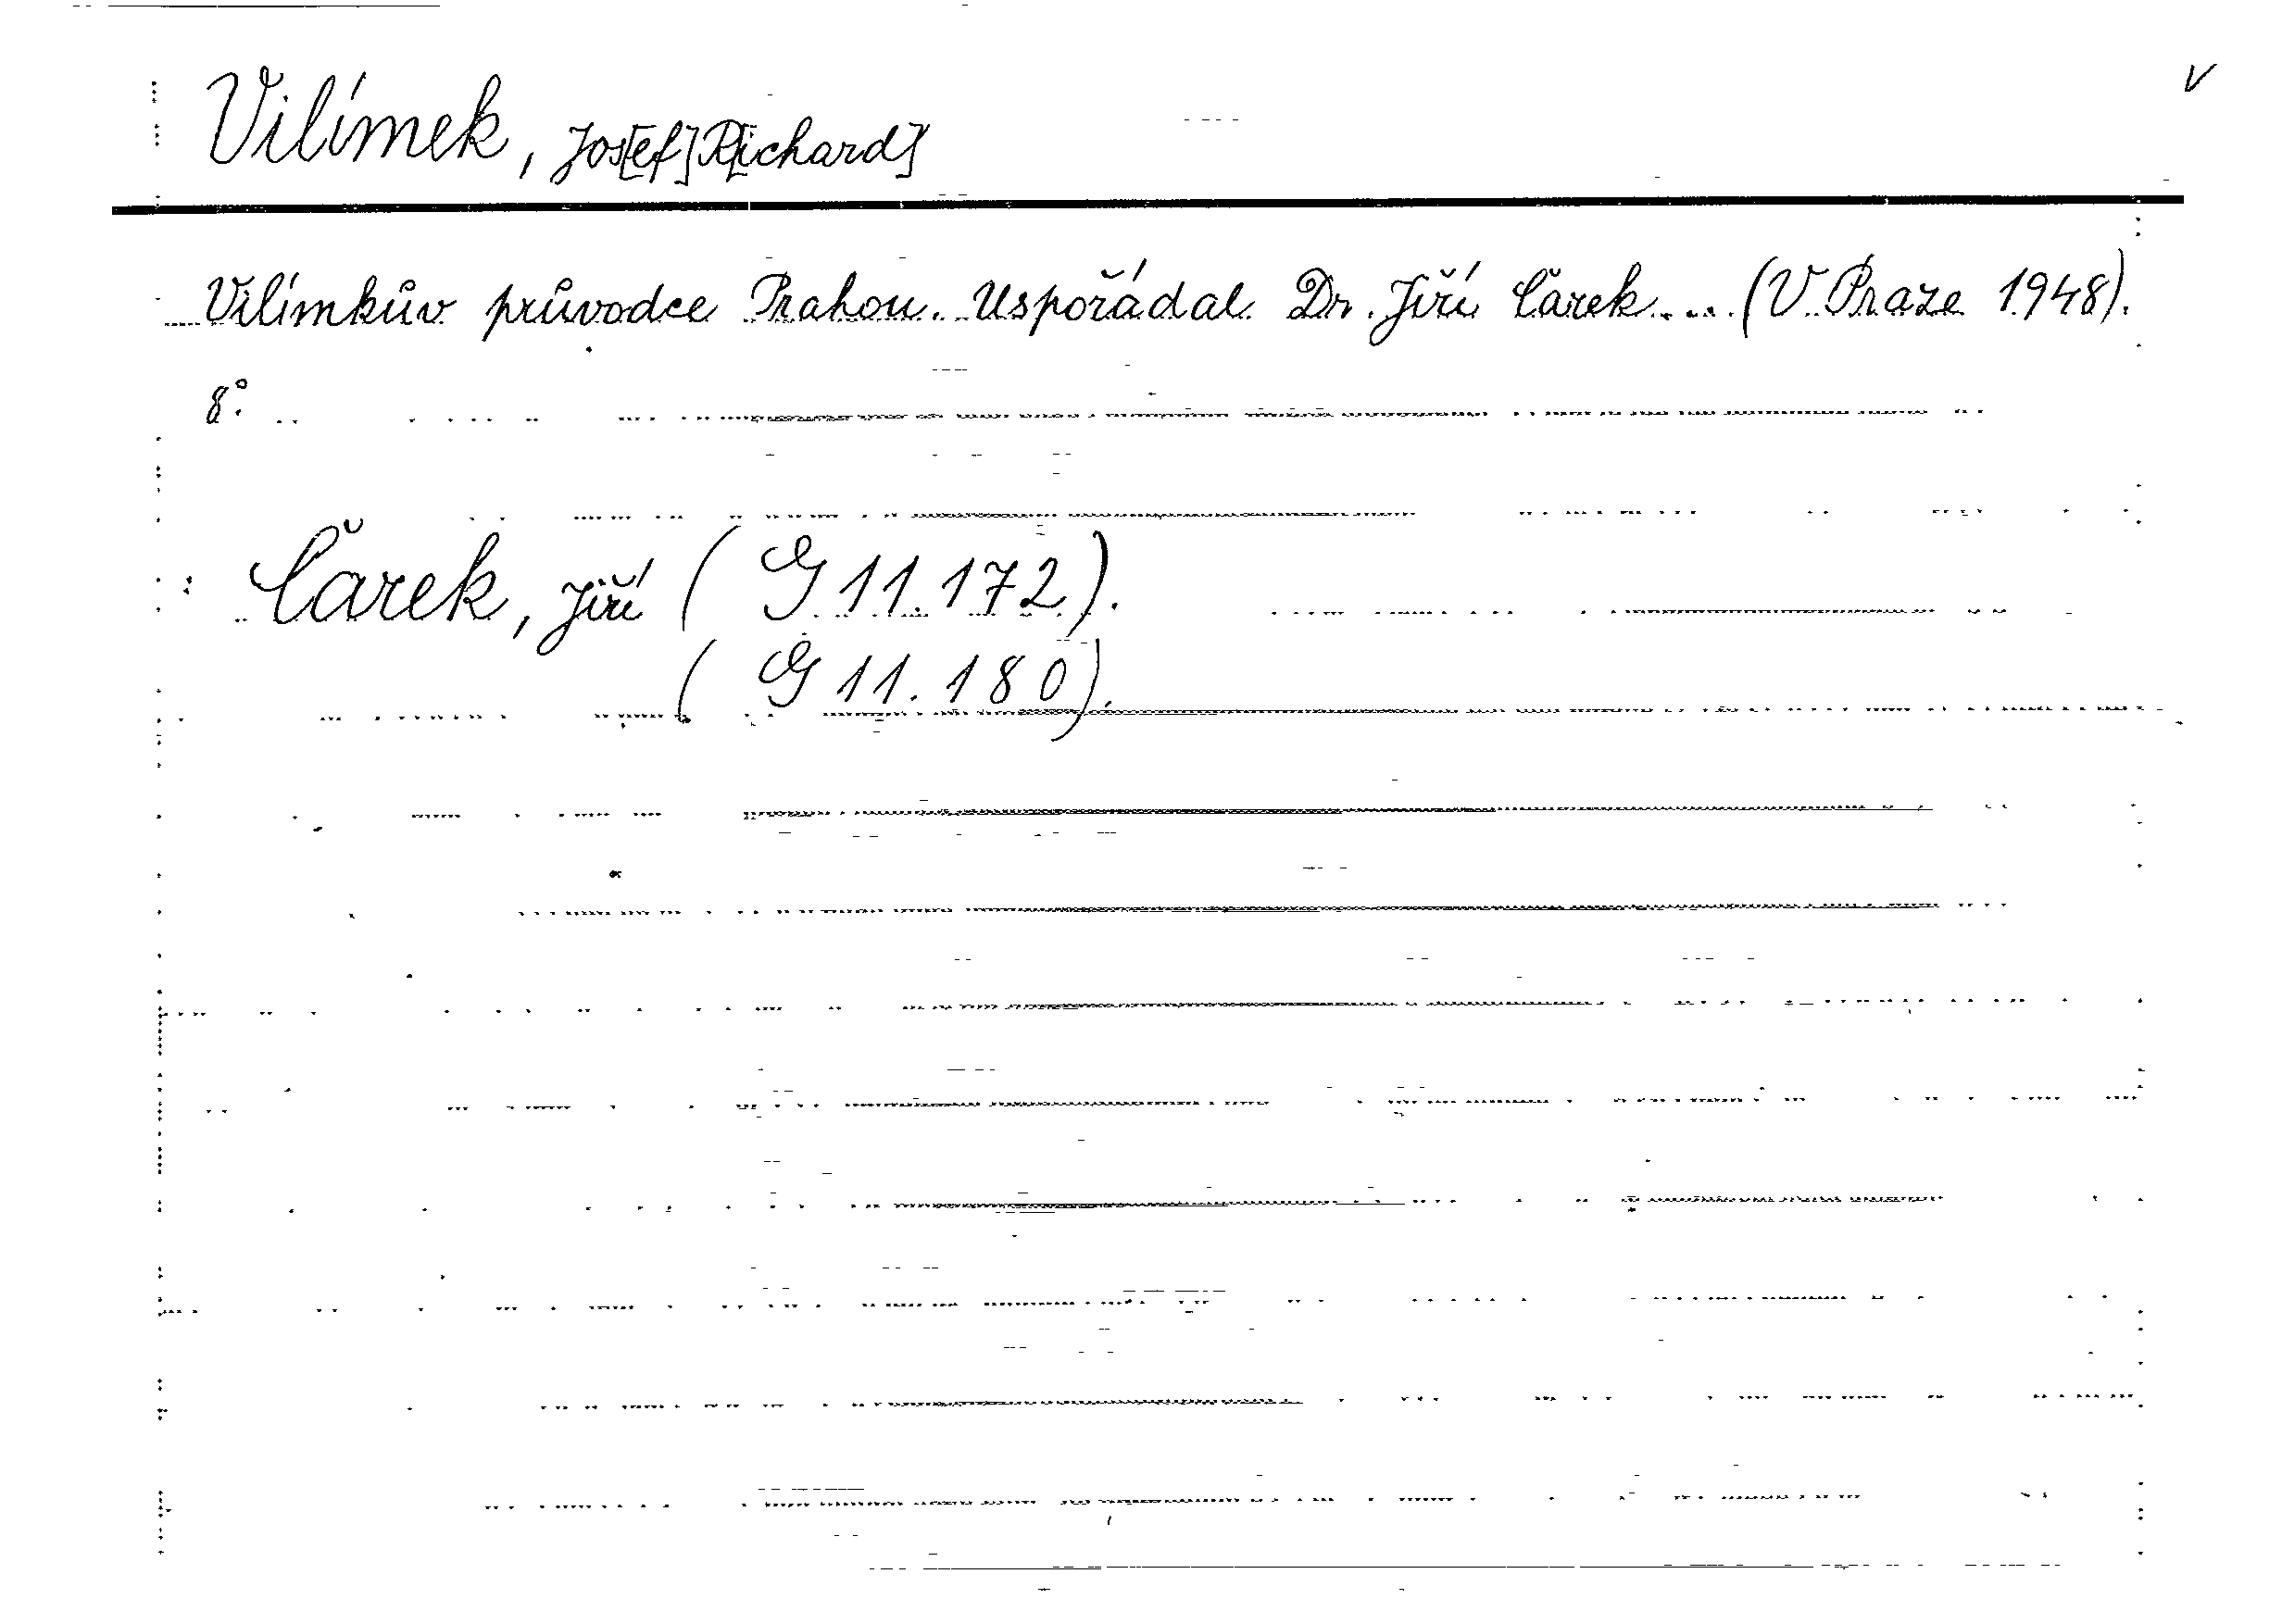 V
Vilímek, Jos[ef] R[ichard]
Vilímkův průvodce Prahou. Uspořádal Dr. Jiří Čárek... (V Praze 1948).
8°.
: Čárek, Jiří ( G 11.172).
( G 11.180).